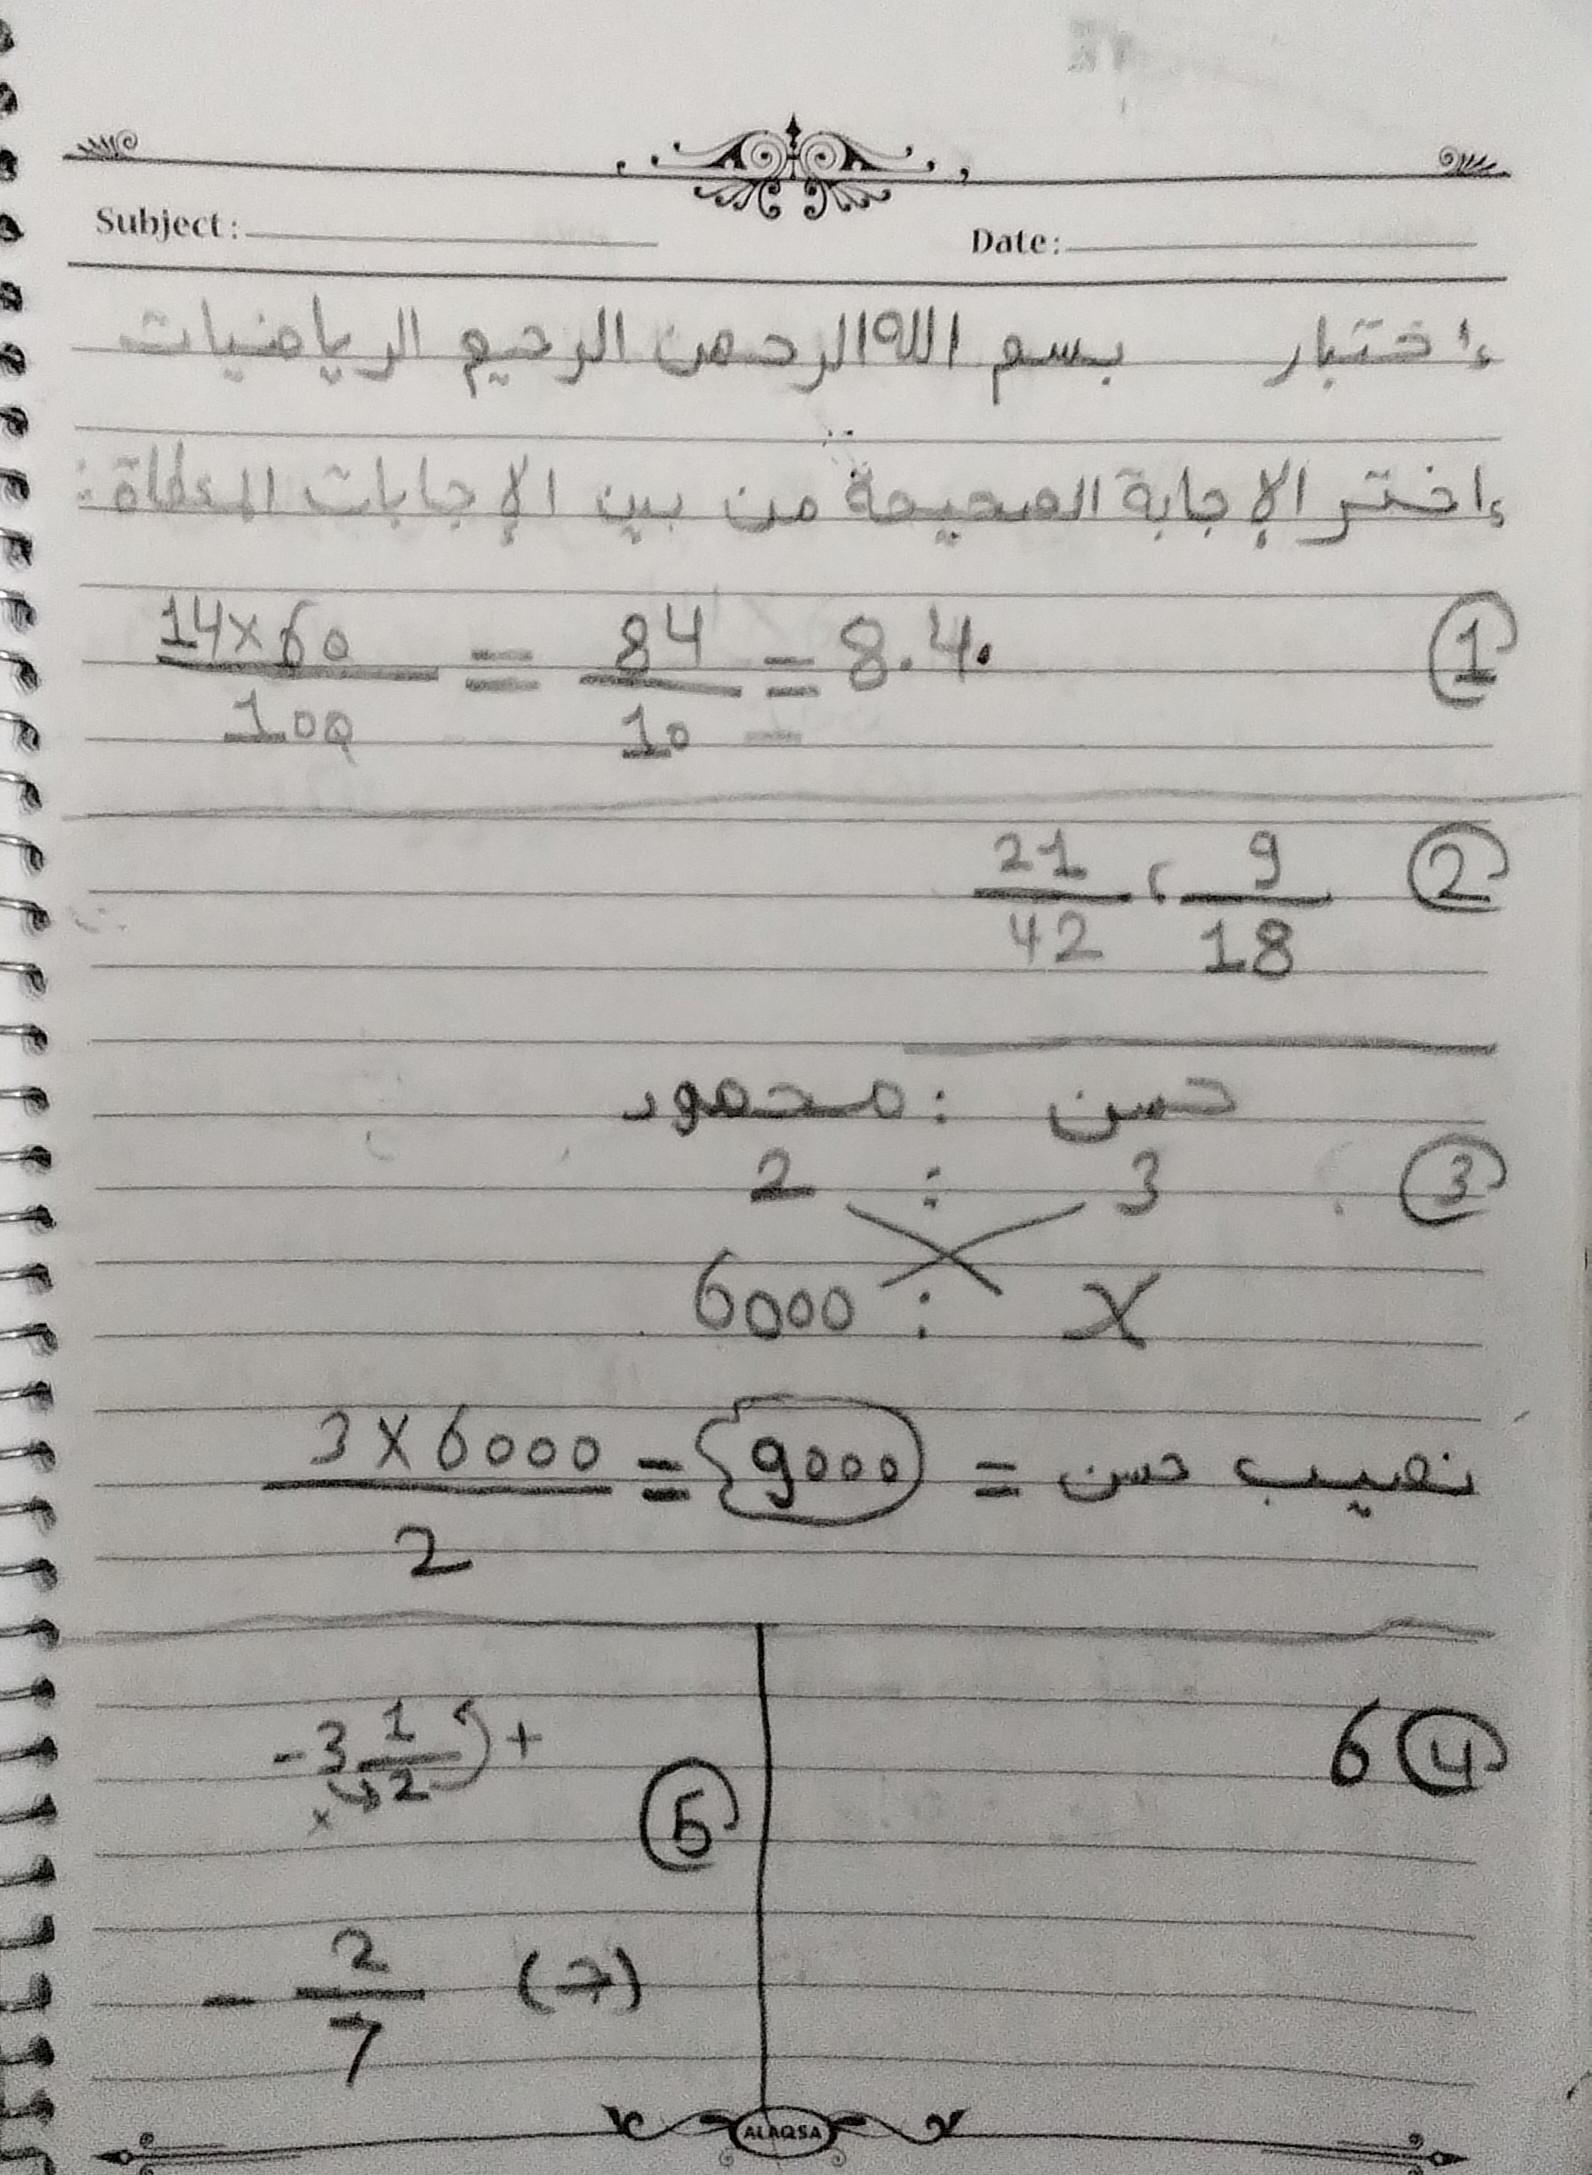 Subject: Date:
إختبار بسم الله الرحمن الرحيم الرياضيات
إختر الإجابة الصحيحة من بين الإجابات المعطاة:
① 14×60/100 = 84/10 = 8.4.
② 9/18 ، 21/42
حسن : محمود
③ 3 : 2
x : 6000
نصيب حسن = 9000 = 3×6000/2
④ 6
⑤ -3 1/2 +
×
- 2/7 (ج)
ALAQSA